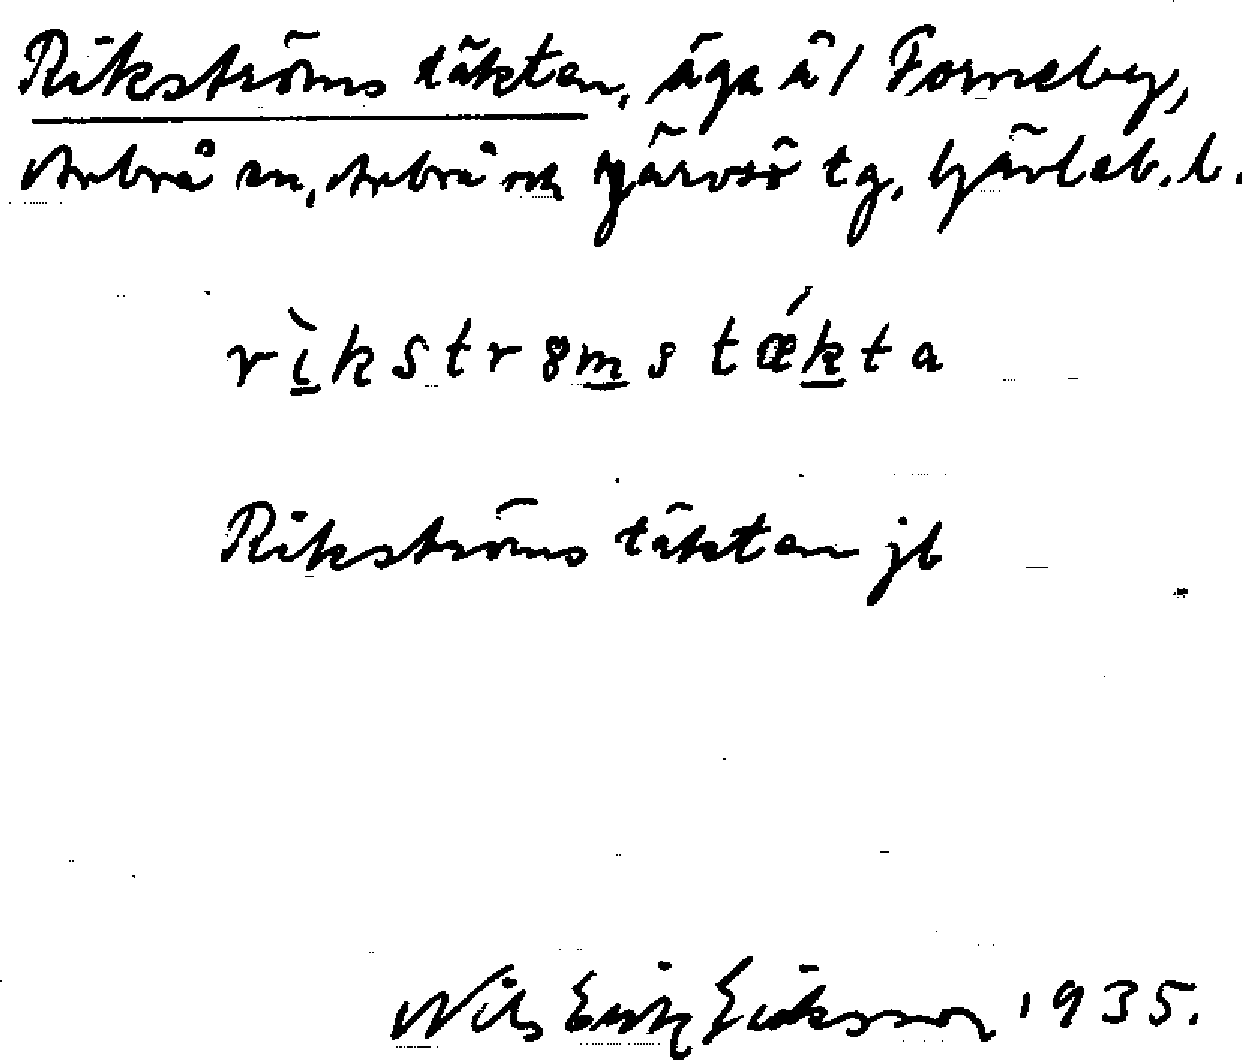 Rikströms täkten, äga å / Forneby,
Arbrå sn, Arbrå och Järvsö tg, Gävleb. l.
rìkstrømstǽkta
Rikströms täkten jb
Nils Erik Eriksson 1935.